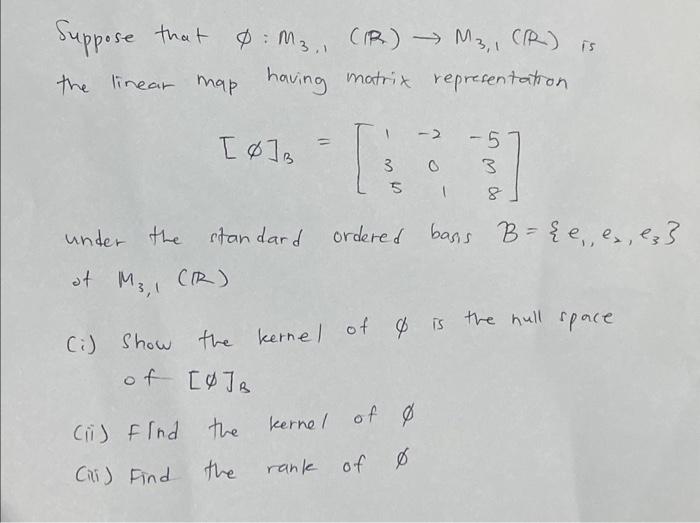 Suppose that ϕ : M₃,₁ (ℝ) → M₃,₁ (ℝ) is
the linear map having matrix representation
[ϕ]_B = [ 1 -2 -5
3 0 3
5 1 8 ]
under the standard ordered basis B = {e₁, e₂, e₃}
of M₃,₁ (ℝ)
(i) Show the kernel of ϕ is the null space
of [ϕ]_B
(ii) Find the kernel of ϕ
(iii) Find the rank of ϕ